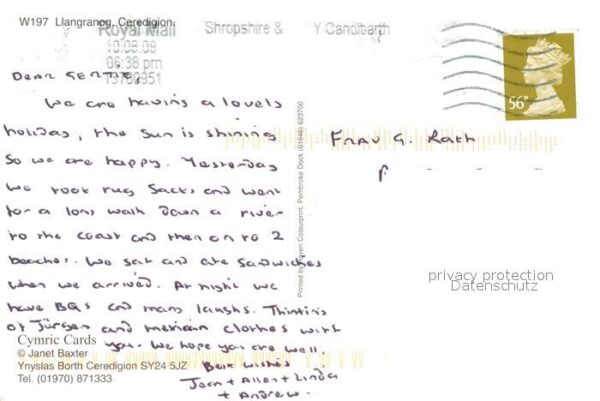 W197 Llangranog, Ceredigion
Royal Mail
Shropshire & Y Canolbarth
10.08.09
06:38 pm
19780951
56P
DEAR GERTIE,
We are having a lovely
holiday, the Sun is shining
So we are happy. Yesterday
we took rug Sacks and went
for a long walk down a river
to the Coast and then on to 2
beaches. We sat and ate Sandwiches
when we arrived. At night we
have BQs and many laughs. Thinking
of Jürgen and mexican clothes with
you. We hope you are well.
Best wishes
Joan + Allen + Linda
+ Andrew.
Frau G. Rath
Printed by Haven Colourprint, Pembroke Dock (01646) 623700
privacy protection
Datenschutz
Cymric Cards
© Janet Baxter
Ynyslas Borth Ceredigion SY24 5JZ
Tel. (01970) 871333